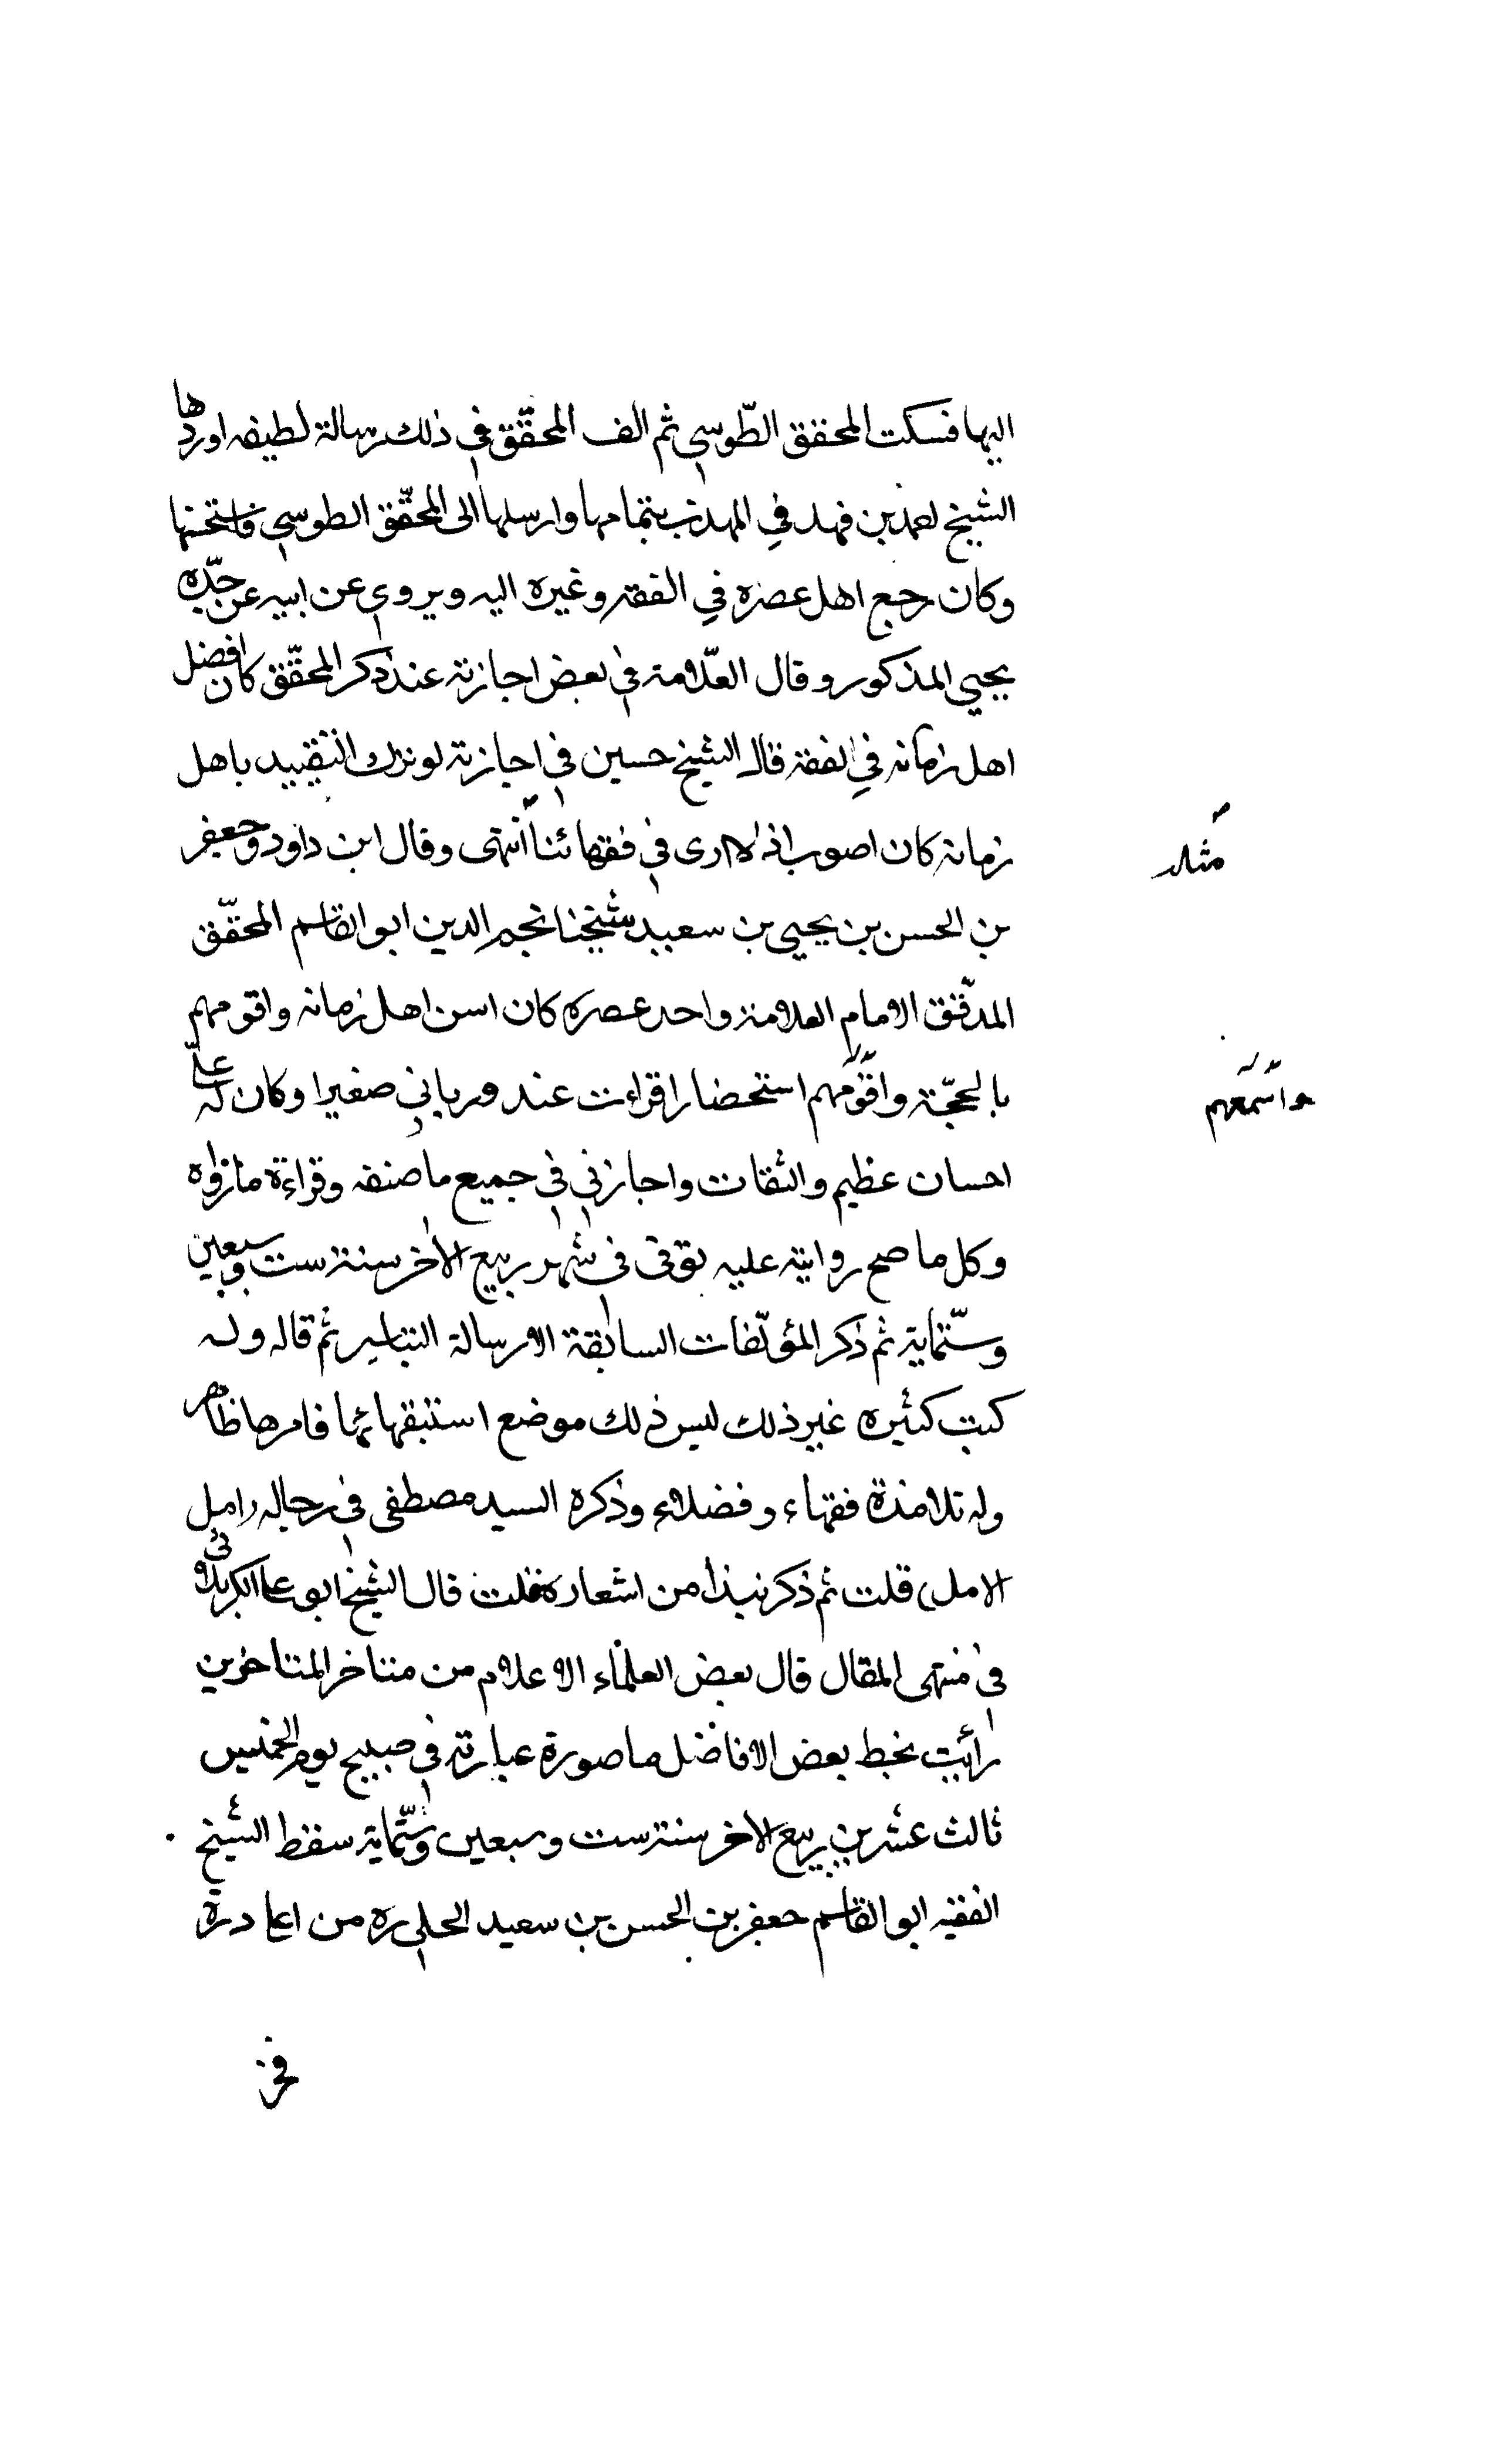 اليها فسكت المحقق الطّوسي ثم الف المحقّق في ذلك رسالة لطيفه اوردها
الشيخ احمد بن فهد في المهذب بتمامها وارسلها الى المحقّق الطوسي فاستحسنها
وكان رجع اهل عصره في الفقه وغيره اليه ويروي عن ابيه عن جدّه
يحيي المذكور وقال العلّامة في بعض اجازته عند ذكر المحقّق كان افضل
اهل زمانه في الفقه قال الشيخ حسين في اجازته لو ترك التقييد باهل
زمانه كان اصوب اذ لا ارى في فقهائنا انتهى وقال ابن داود وجعفر
مثله
بن الحسن بن يحيى بن سعيد شيخنا نجم الدين ابو القاسم المحقّق
المدقّق الامام العلامة واحد عصره كان السن اهل زمانه واقومهم
بالحجّة واقومهم استحضارا قراءت عنده ورباني صغيرا وكان له علىّ
واسمعهم
احسان عظيم والتقات واجازني في جميع ما صنفه وقراءة مازواه
وكل ما صح روايته عليه توفى في شهر ربيع الاخر سنة ست وسبعين
وستّماية ثم ذكر المؤلّفات السابقة الا رسالة التياسر ثم قال وله
كتب كثيره غير ذلك ليس ذلك موضع استيقهائها فامرها ظاهر
وله تلامذة فقهاء وفضلاء وذكره السيد مصطفى في رجاله امل
الامل قلت ثم ذكر نبذا من اشعاره قلت قال الشيخ ابو على الكربلائى
في منتهى المقال قال بعض العلماء الاعلام من متاخر المتاخرين
رائيت بخط بعض الافاضل ما صورة عبارته في صبيح يوم الخميس
ثالث عشر من ربيع الاخر سنة ست وسبعين وستّماية سقط الشيخ
الفقيه ابو القاسم جعفر بن الحسن بن سعيد الحلي ره من اعلا درة